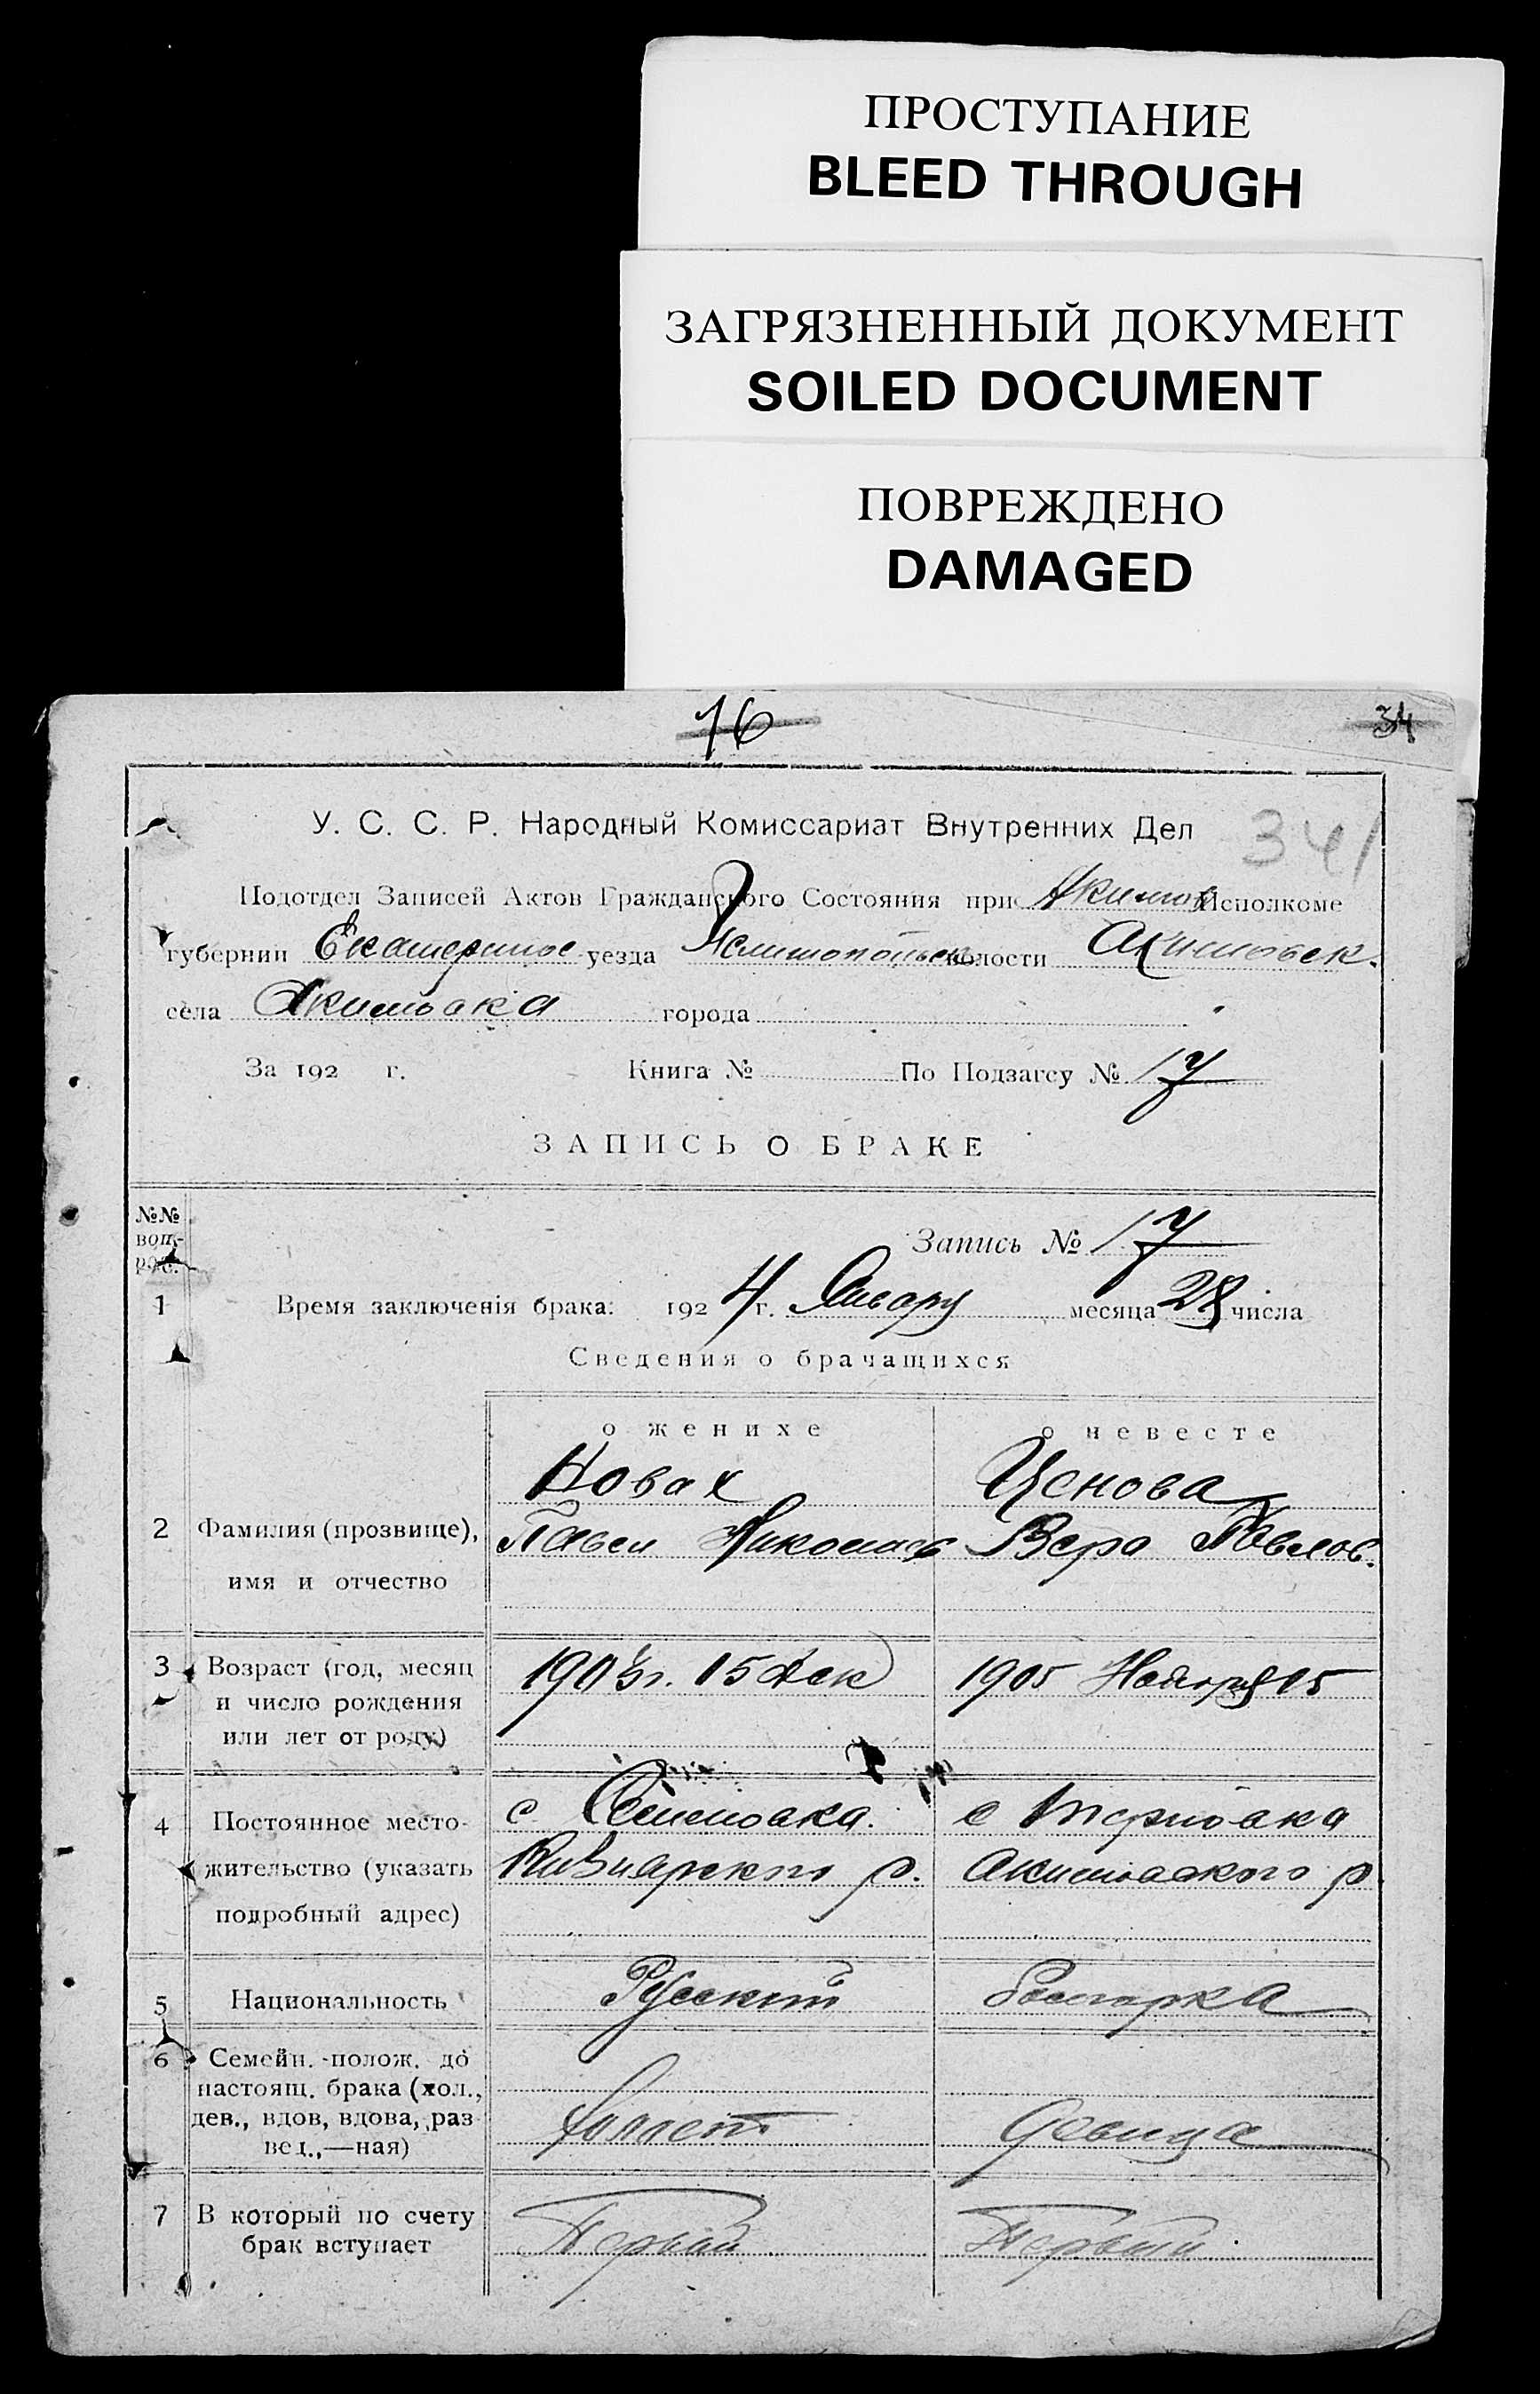 ПРОСТУПАНИЕ
BLEED THROUGH
ЗАГРЯЗНЕННЫЙ ДОКУМЕНТ
SOILED DOCUMENT
ПОВРЕЖДЕНО
DAMAGED
16
34
У. С. С. Р. Народный Комиссариат Внутренних Дел
341
Подотдел Записей Актов Гражданского Состояния при Акимов Исполкоме
губернии Екатеринос уезда Мелитопольск волости Акимовск.
села Акимовка города
За 192 г. Книга № По Подзагсу № 17
ЗАПИСЬ О БРАКЕ
№№ воп-рос.
Запись № 17
1 Время заключенія брака: 1924 г. Январь месяца 28 числа
Сведения о брачащихся
о женихе о невесте
Новак Ценова
2 Фамилия (прозвище), Павел Николаев Вера Павлов.
имя и отчество
3 Возраст (год, месяц 1903г. 15 Дек 1905 Ноября 15
и число рождения
или лет от роду)
4 Постоянное место- с Семеновка. с Терновка
жительство (указать Кизиярского р. Акимовского р
подробный адрес)
5 Национальность Русский Болгарка
6 Семейн. полож. до
настоящ. брака (хол.,
дев., вдов, вдова, раз Холост Девица
вед.,—ная)
7 В который по счету Первый Первый
брак вступает